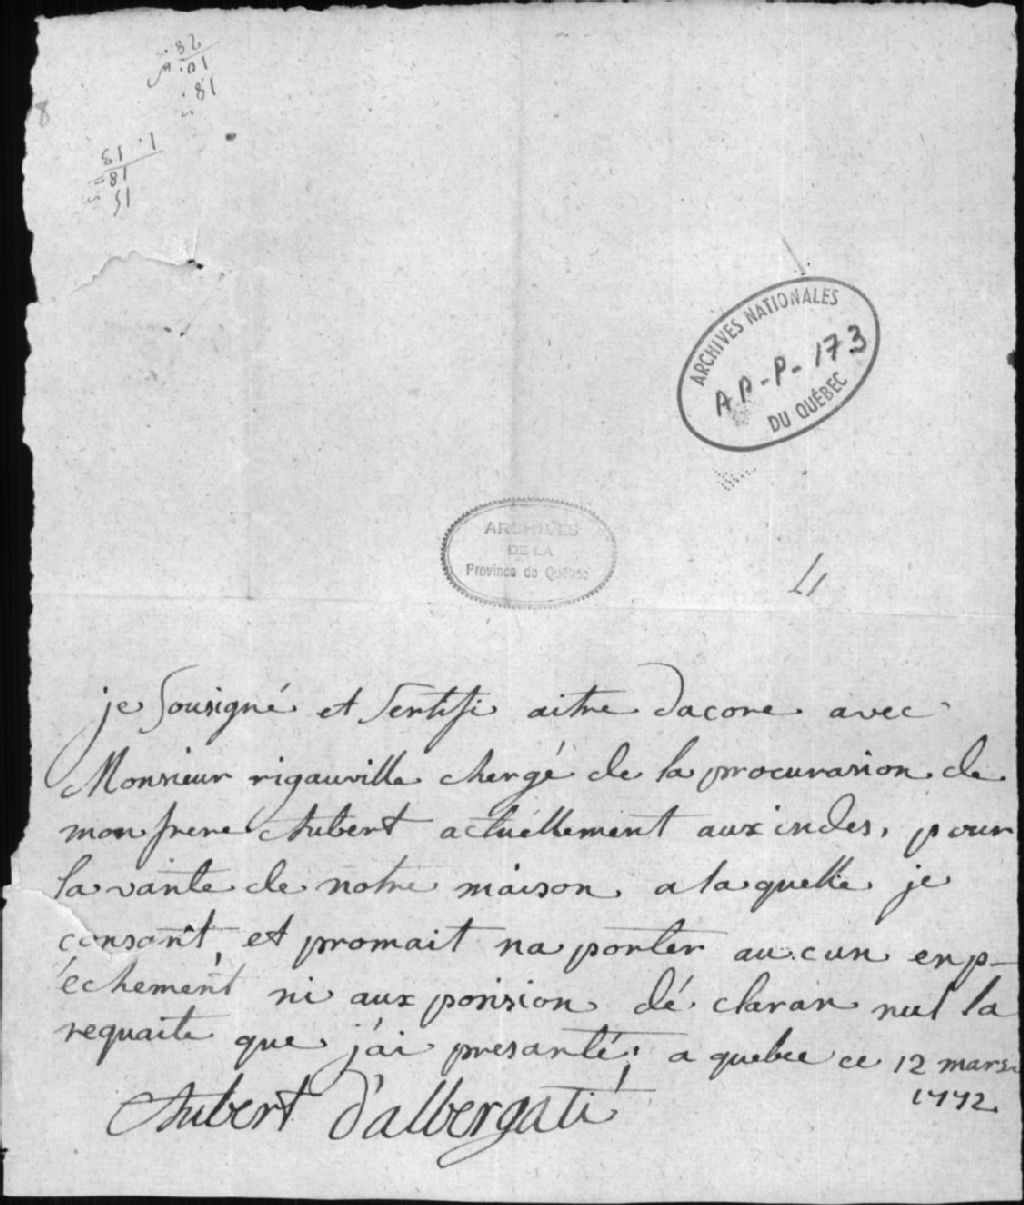 28.
10.
18.
8
1. 13
18
15
ARCHIVES NATIONALES
AP-P-173
DU QUÉBEC
ARCHIVES
DE LA
Province de Québec
je sousigné et sertifi aitre dacore avec
Monsieur rigauville chergé de la procurasion de
mon frere Aubert actuellement aux indes, pour
la vante de notre maison a la quelle je
consant, et promait na porter au cun enp-
echement ni aux posision dé claran nul la
requaite que j'ai presanté; a quebec ce 12 mars
1772
Aubert d'albergati